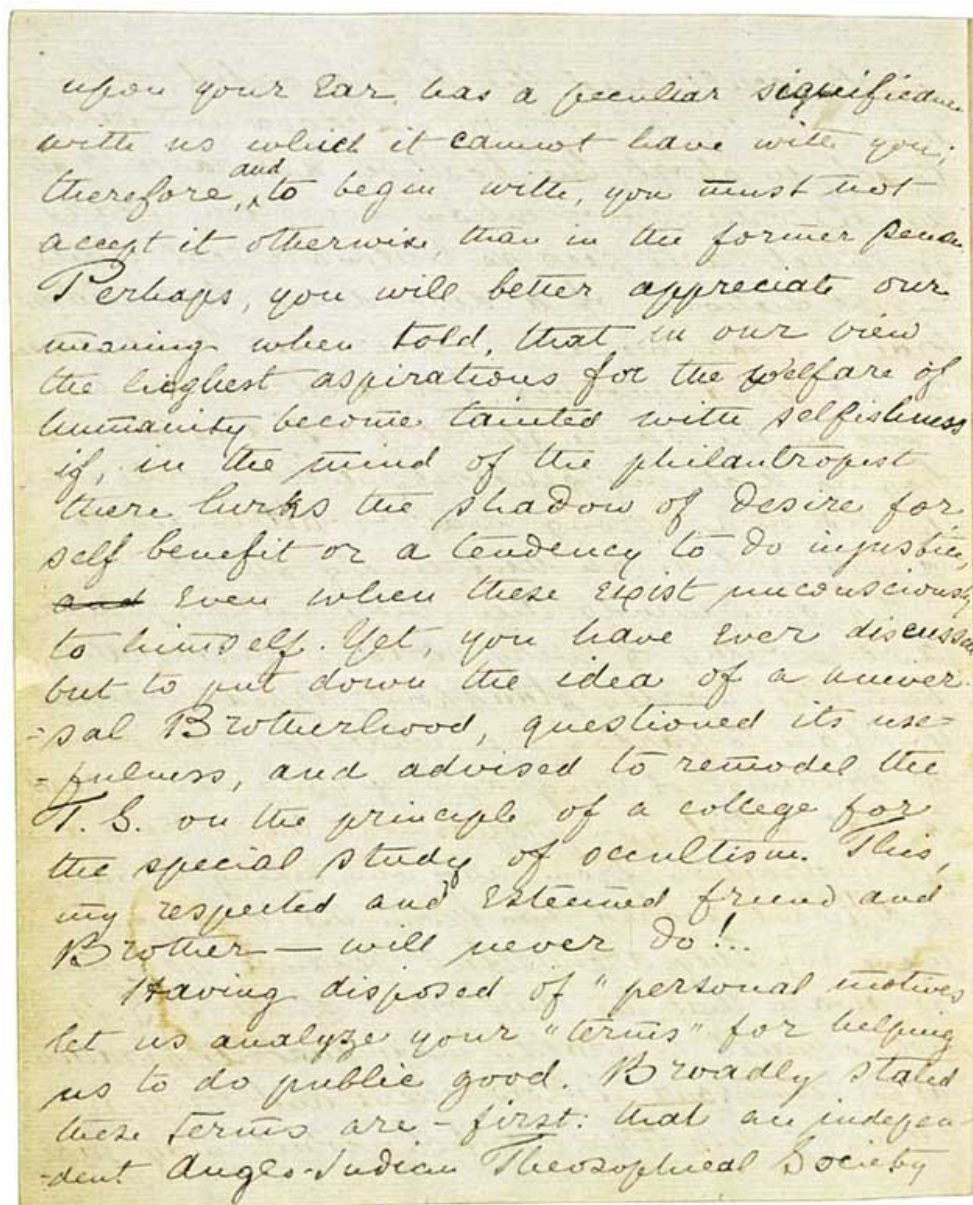 upon your ear has a peculiar significance
with us which it cannot have with you;
therefore, and to begin with, you must not
accept it otherwise, than in the former sense
Perhaps, you will better appreciate our
meaning when told, that in our view
the highest aspirations for the welfare of
humanity become tainted with selfishness
if, in the mind of the philantropist
there lurks the shadow of desire for
self benefit or a tendency to do injustice,
and even when these exist unconsciously
to himself. Yet, you have ever discussed
but to put down the idea of a univer-
=sal Brotherhood, questioned its use=
-fulness, and advised to remodel the
T. S. on the principle of a college for
the special study of occultism. This,
my respected and esteemed friend and
Brother — will never do!..
Having disposed of "personal motives
let us analyze your "terms" for helping
us to do public good. Broadly stated
these terms are - first: that an indepen-
-dent Anglo-Indian Theosophical Society